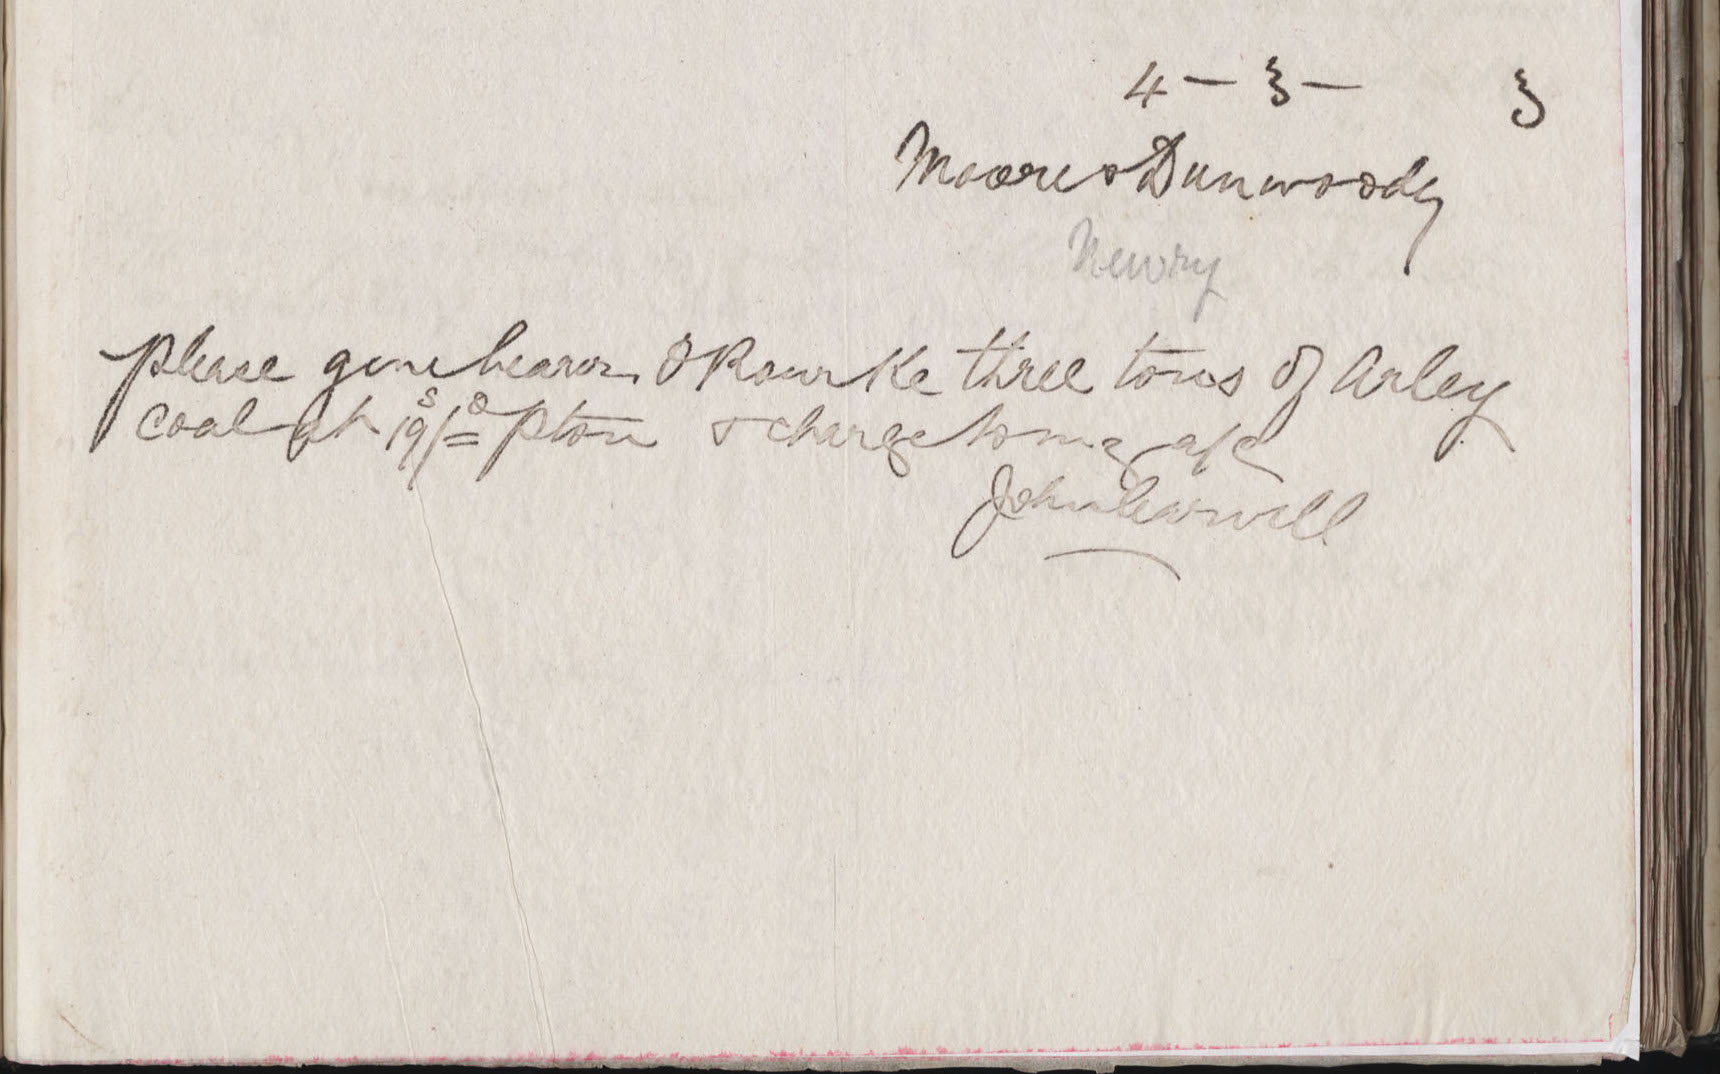 4 - 3 - 3
Moore & Dunwoody
Newry
please give bearer O Rourke three tons of Arley
coal at 19s/=d pton & charge to my a/c
John Carvill